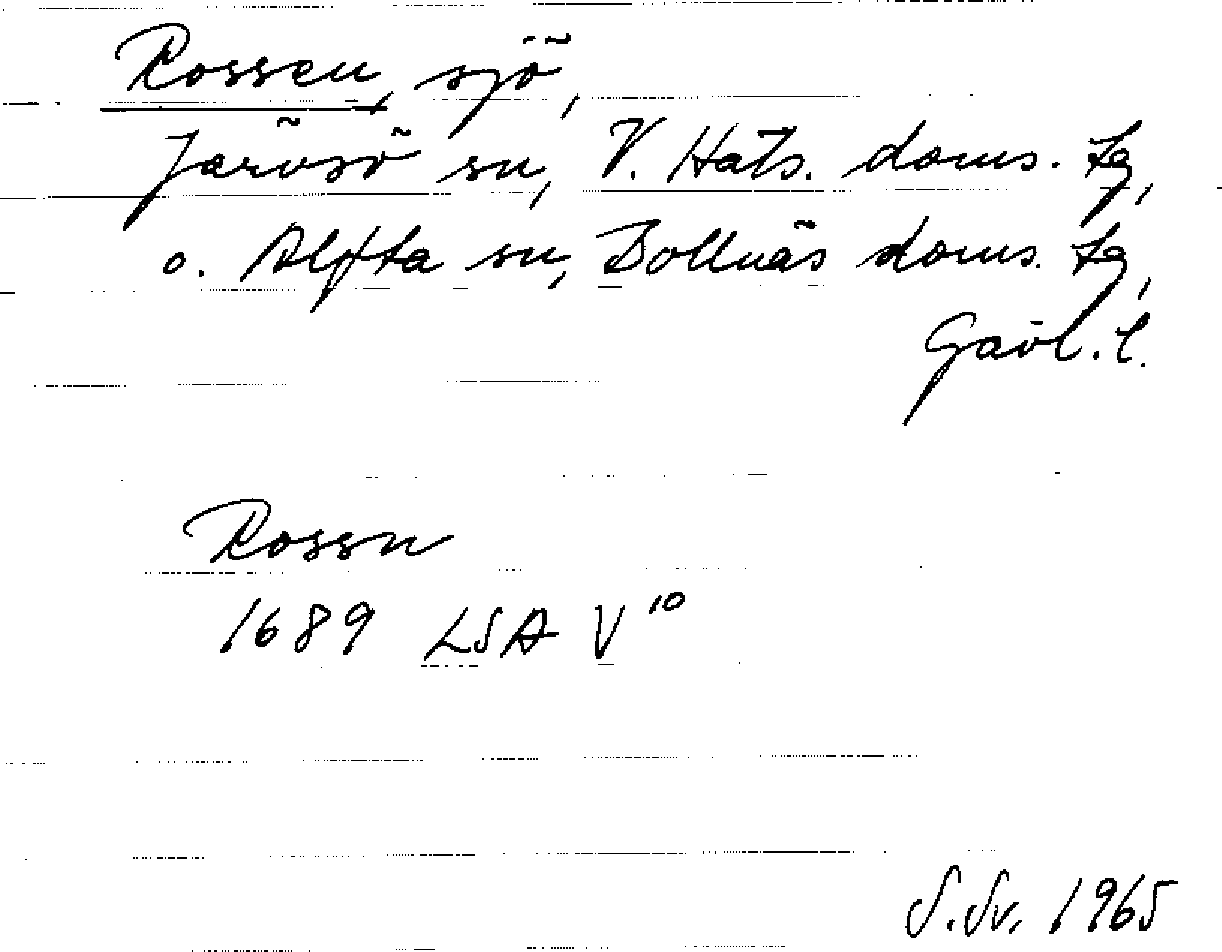 Rossen, sjö,
Järvsö sn, V. Häls. doms. tg,
o. Alfta sn, Bollnäs doms. tg,
Gävl. l.
Rossn
1689 LSA V 10
S. Sv. 1965